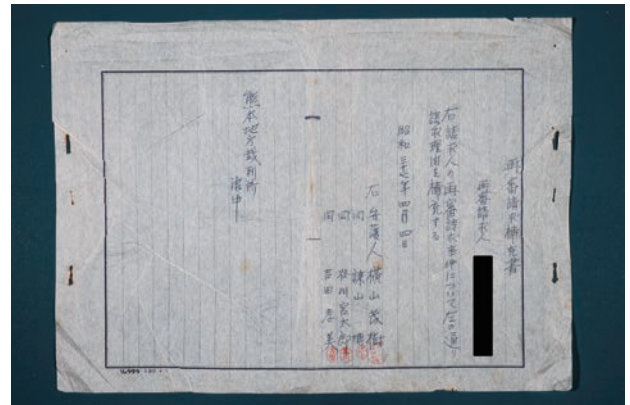 再審請求補充書
再審請求人
右請求人の再審請求事件について左の通り
請求理由を補充する
昭和三十七年四月四日
右弁護人 横山茂樹
同 諫山博
同 谷川宮太郎
同 吉田孝美
熊本地方裁判所
御中